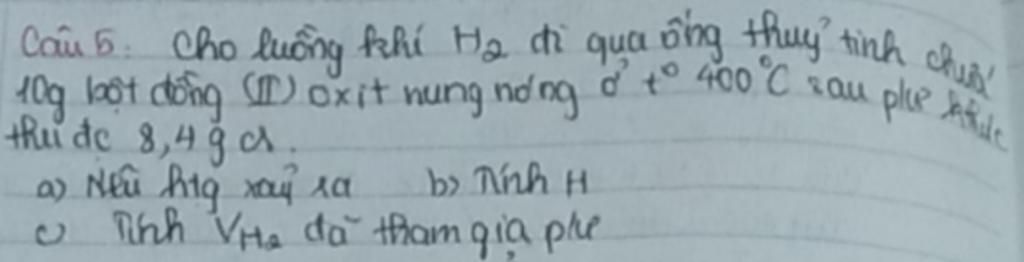 Câu 5. Cho luồng khí H₂ đi qua ống thuỷ tinh chứa
10g bột đồng (II) oxit nung nóng ở t° 400°C sau pứ
thu đc 8,4 g cr.
a) Nêu htg xảy ra b) Tính H
c) Tính V_H₂ đã tham gia pứ